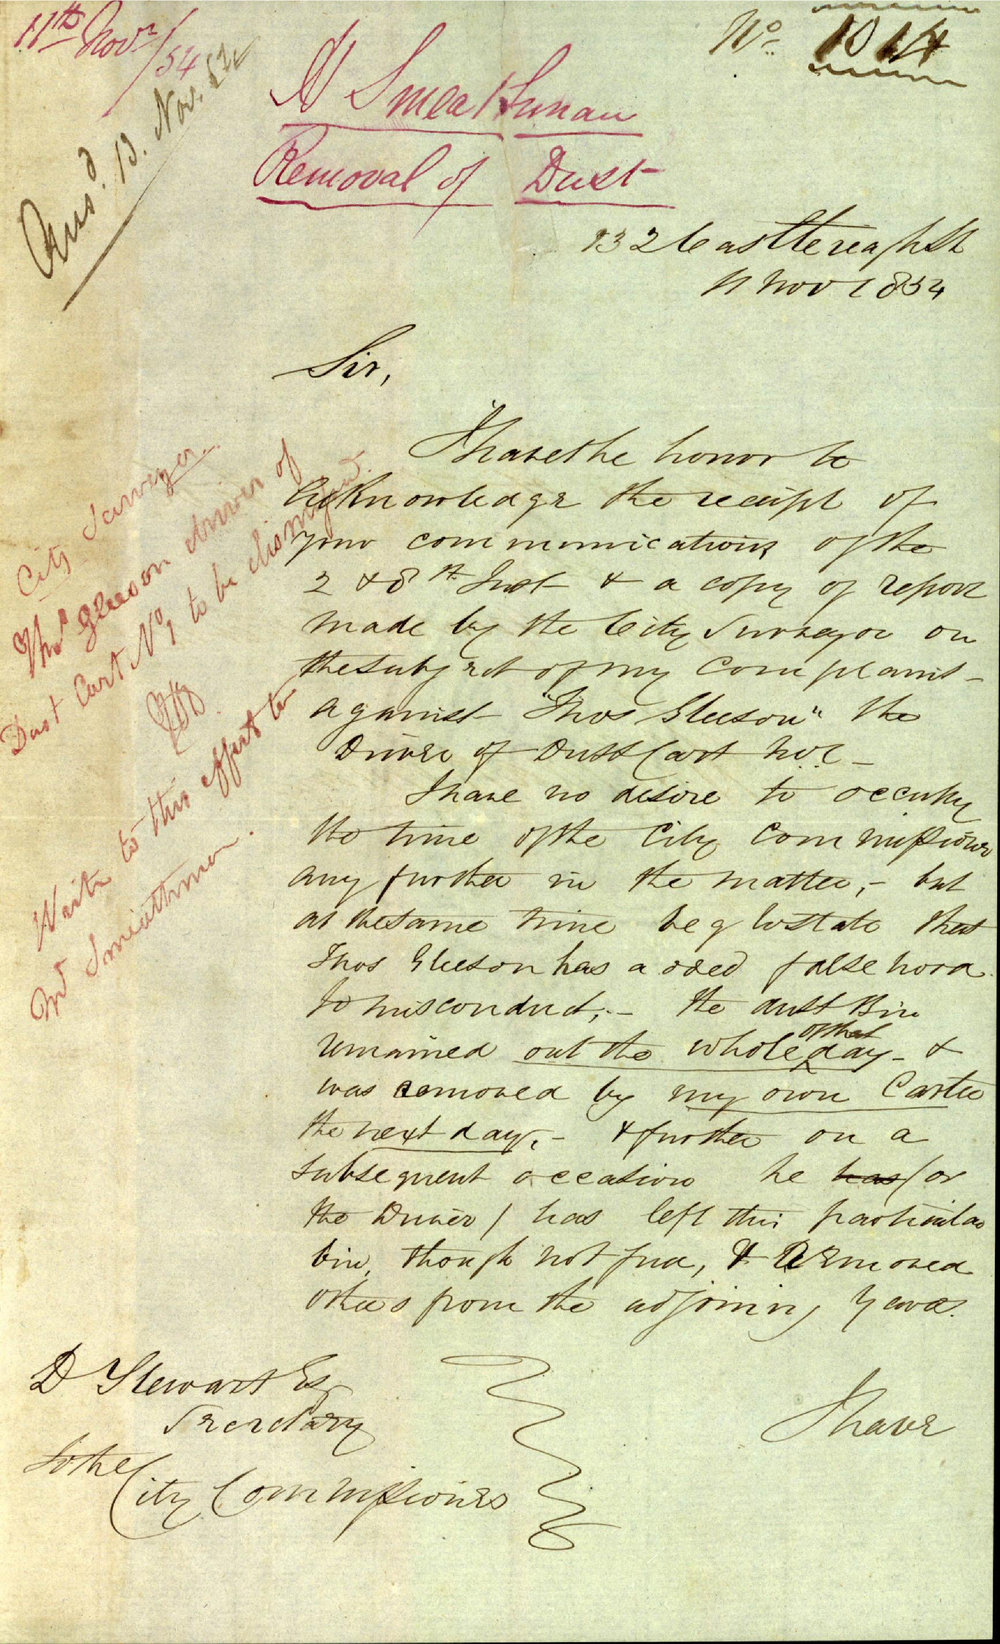 11th Novr /54
Ansd. 13. Nov. 54
No. 1014
Smeathman
Removal of Dust
132 Castlereagh St
11 Nov 1854
Sir,
I have the honor to
acknowledge the receipt of
your communications of the
2 & 8th Inst & a copy of report
made by the City Surveyor on
the subject of my complaint –
against "Thos Gleeson" the
Driver of Dust Cart No 1 –
I have no desire to occupy
the time of the City Commissioners
any further in the matter, – but
at the same time beg to state that
Thos Gleeson has added falsehood
to misconduct; – the dust Bin
remained out the whole of that day – &
was removed by my own Carter
the next day, – & further on a
subsequent occasion he has (or
the Driver) has left this particular
bin, though not full, & Removed
others from the adjoining yards.
I have
D Stewart Esq
Secretary
to the
City Commissioners
City Surveyor.
Thos Gleeson driver of
Dust Cart No 1 to be dismissed.
Write to this effect to
Mr Smeathman.